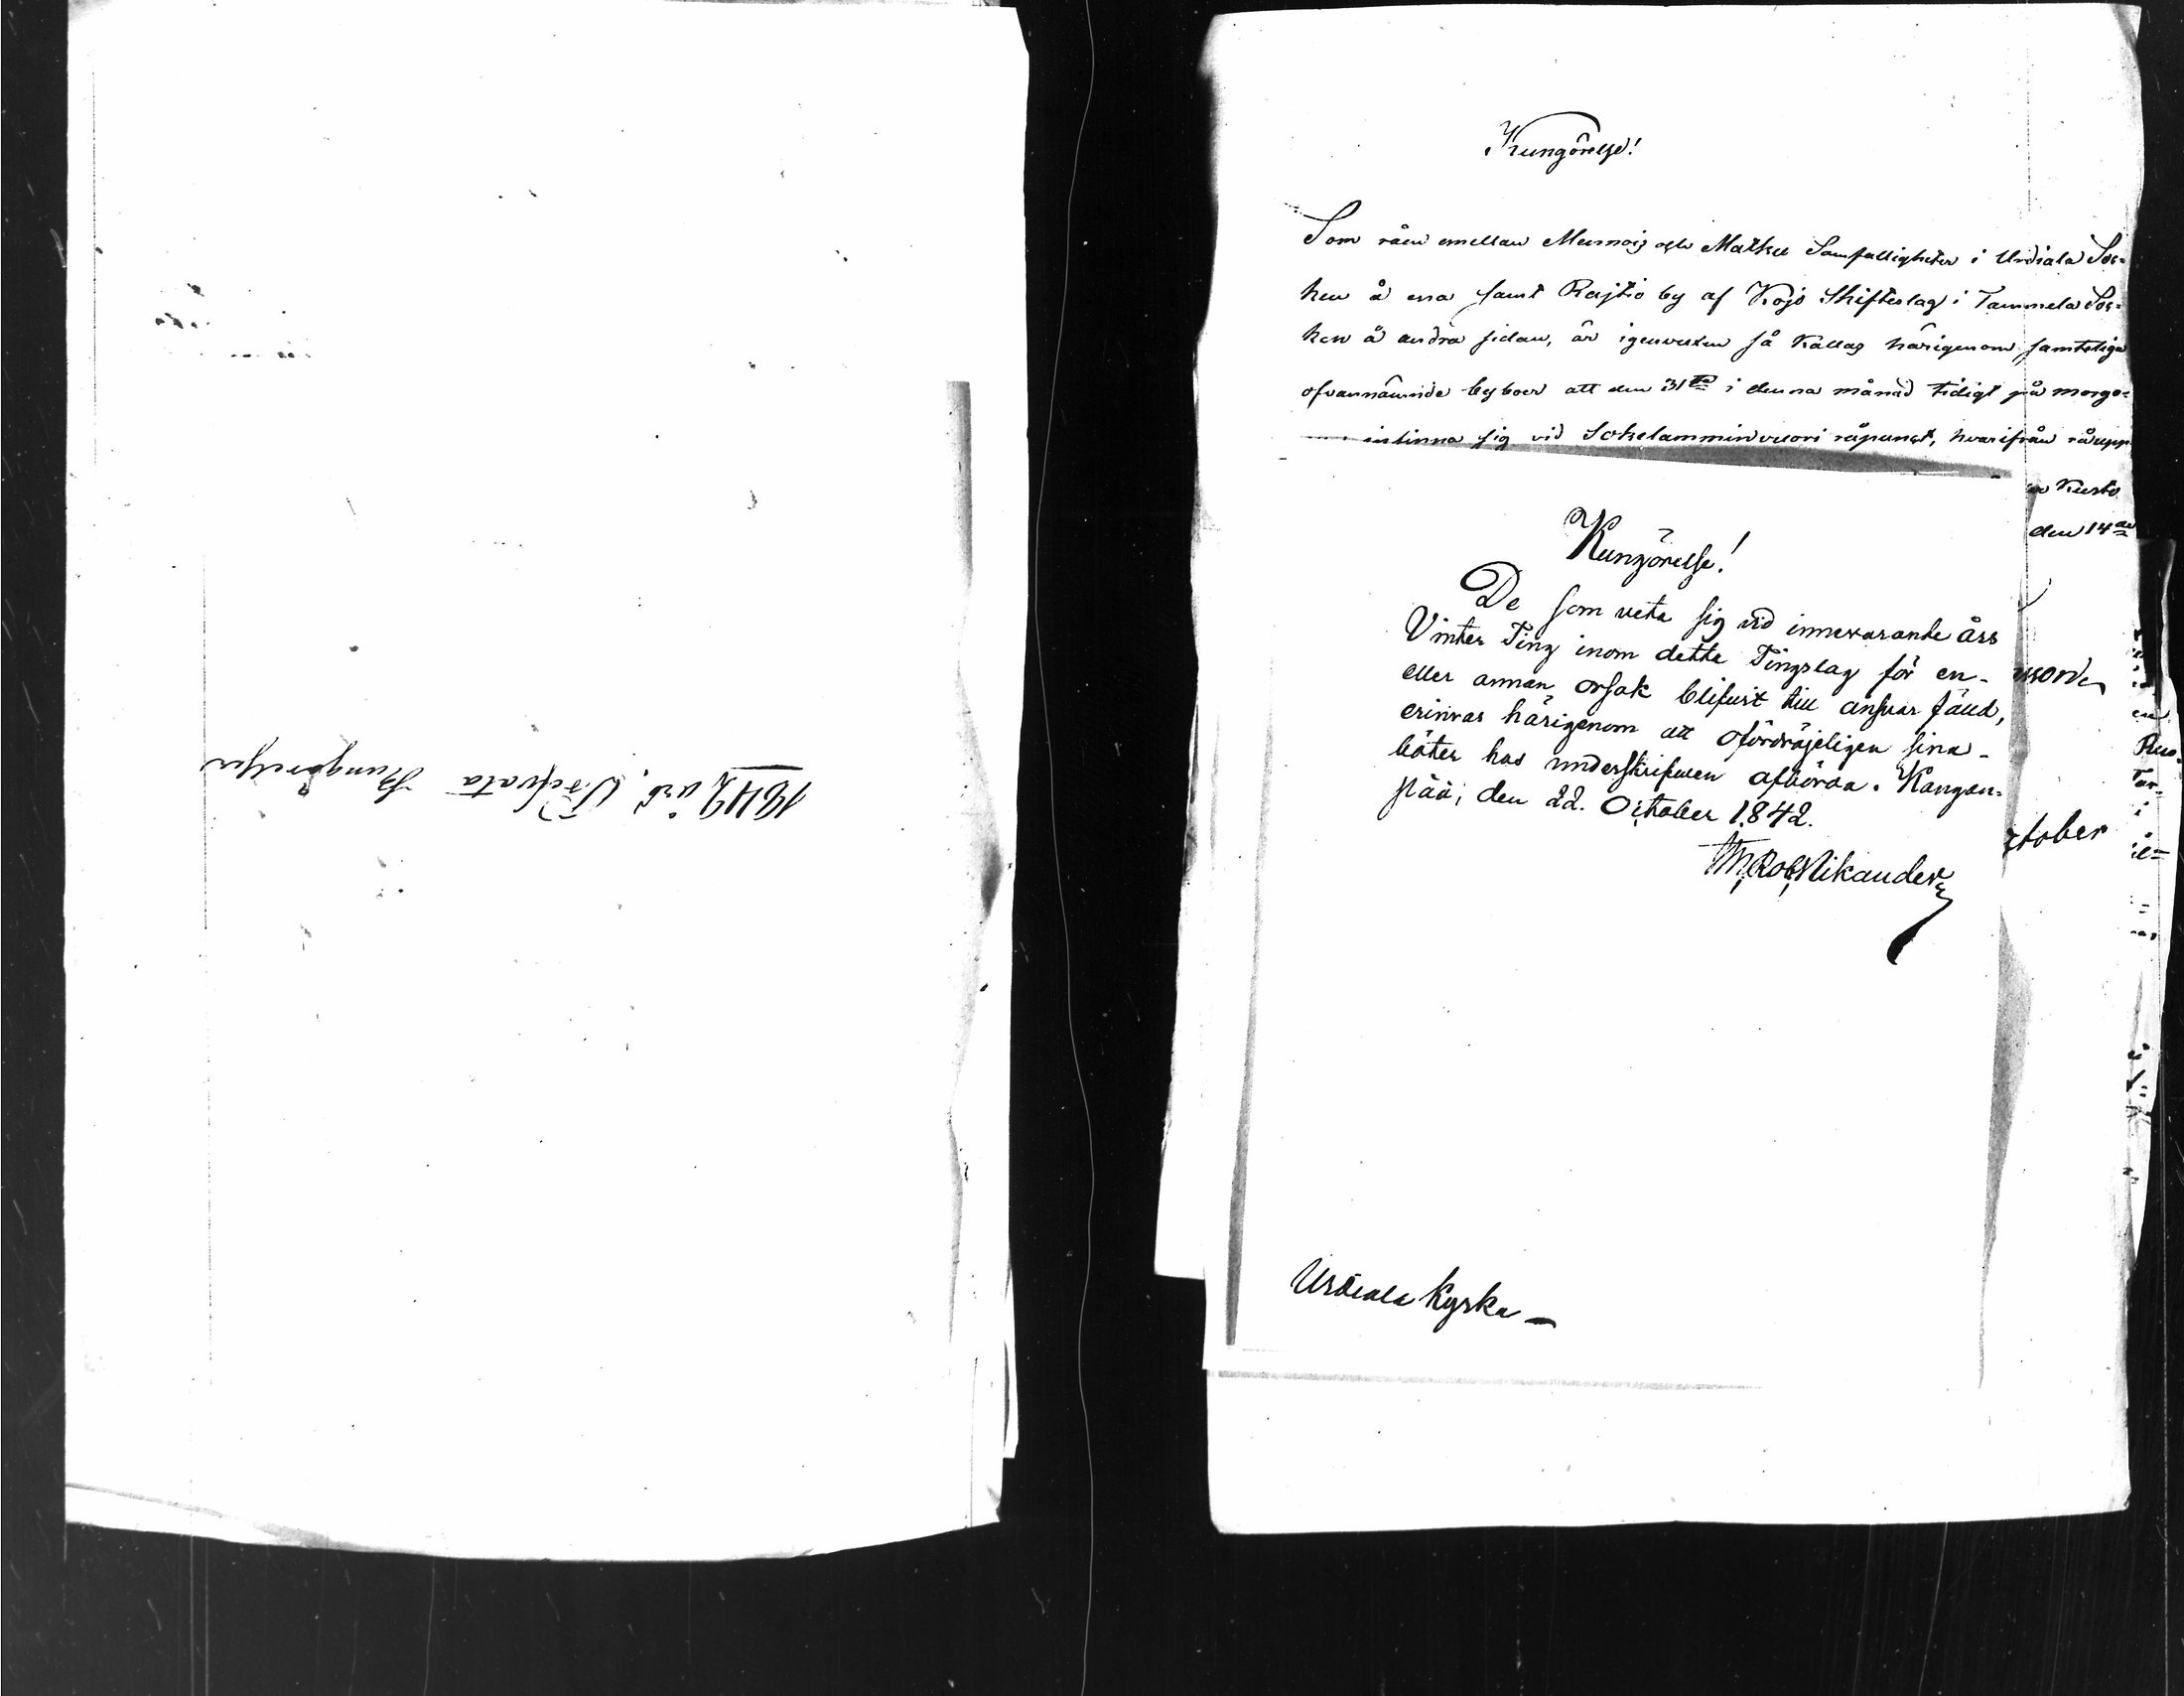 1842 års Privata Kungörelser
Kungörelse!
Som råen emellan Mennois och Matku Samfälligheter i Urdiala Soc=
ken å ena samt Rajtio by af Kojo Skifteslag i Tammela Soc=
ken å andra sidan, är igenvuxen så kallas härigenom samtelige
ofvannämnde byboer att den 31ta i denna månad tidigt på morgo=
infinna sig vid Sokelamminvuori råpunct, hvarifrån råupp
Kusto
den 14de
Kungörelse!
De som veta sig vid innevarande års
Vinter Ting inom detta Tingslag för en-
eller annan orsak blifvit till ansvar fäld,
erinras härigenom att ofördröjeligen sina-
böter hos underskrifven afbörda. Kangan=
pää, den 22. October 1842.
Nikander
ctober
Urdiala Kyrka